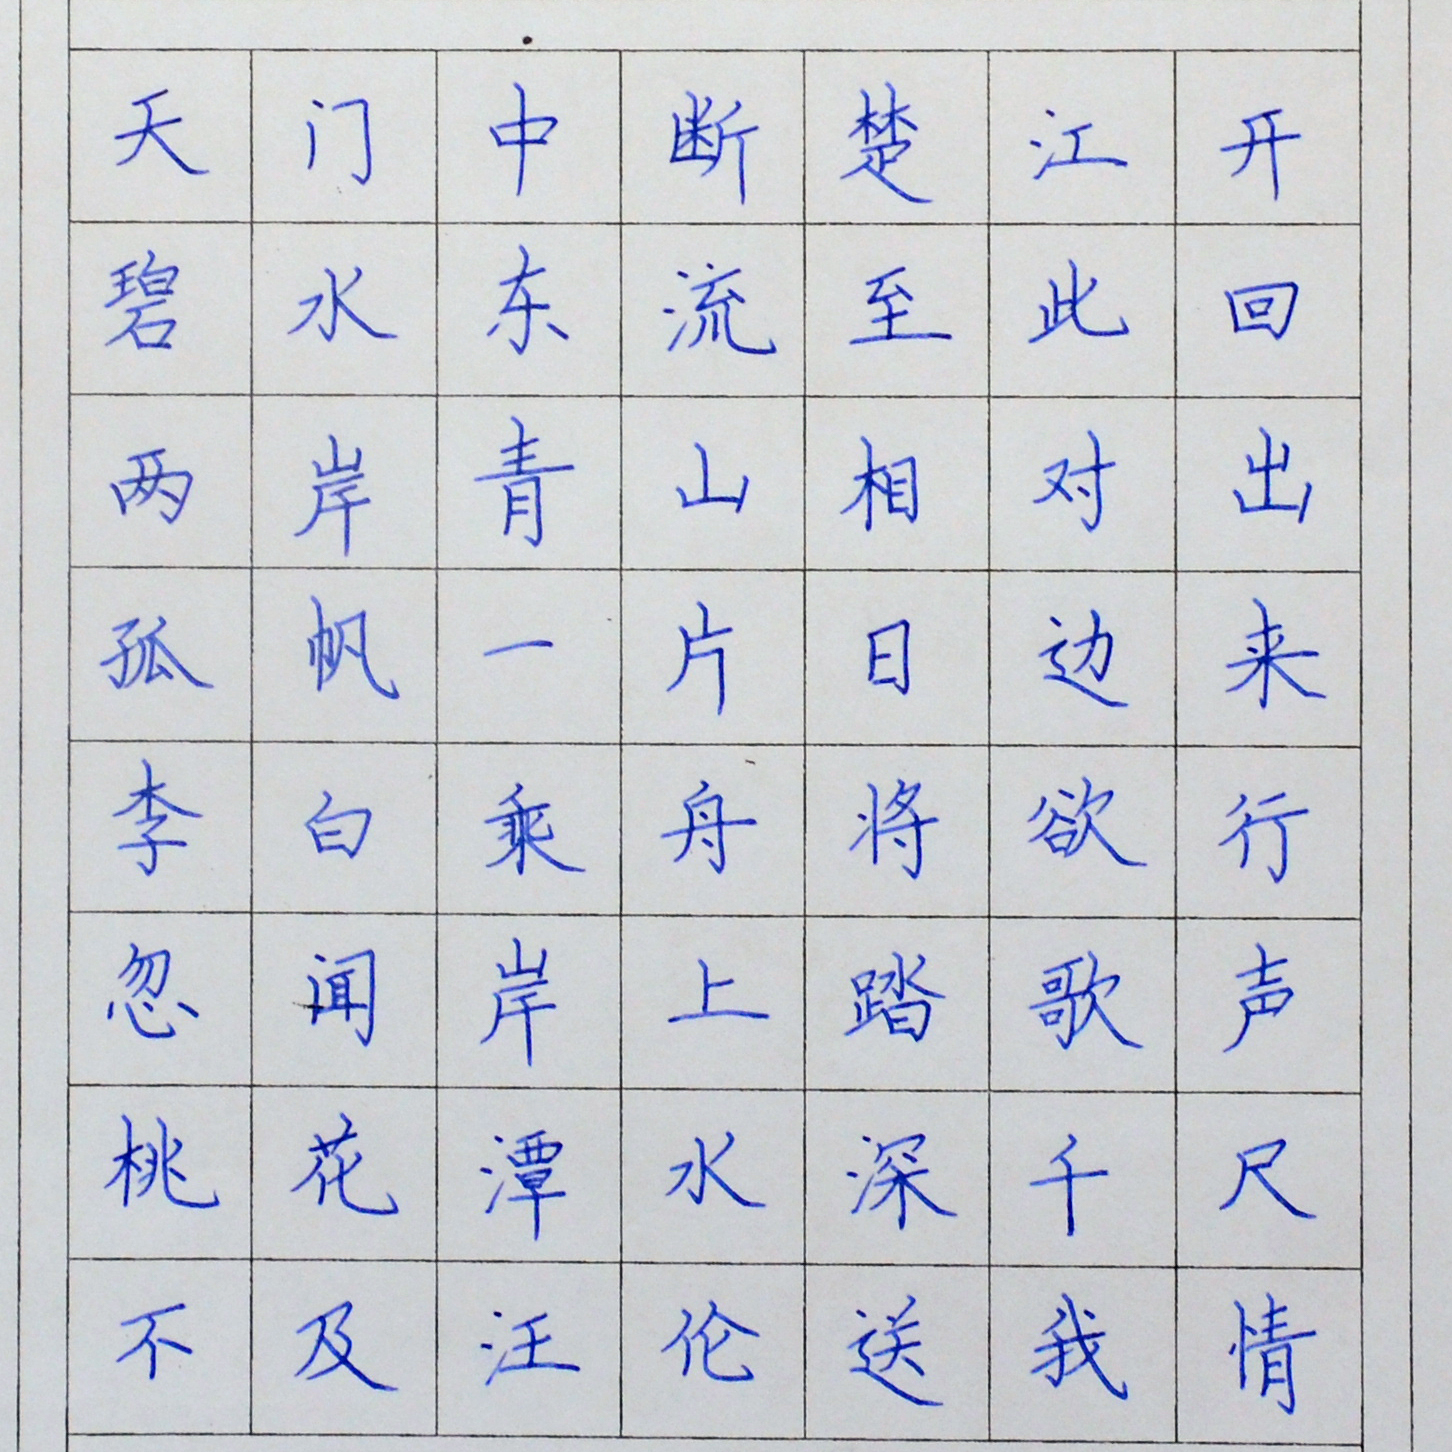 天门中断楚江开
碧水东流至此回
两岸青山相对出
孤帆一片日边来
李白乘舟将欲行
忽闻岸上踏歌声
桃花潭水深千尺
不及汪伦送我情